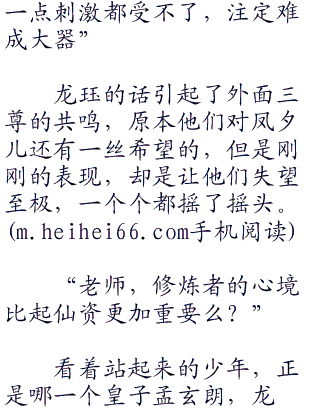 一点刺激都受不了，注定难
成大器”
龙珏的话引起了外面三
尊的共鸣，原本他们对凤夕
儿还有一丝希望的，但是刚
刚的表现，却是让他们失望
至极，一个个都摇了摇头。
(m.heihei66.com手机阅读)
“老师，修炼者的心境
比起仙资更加重要么？”
看着站起来的少年，正
是哪一个皇子孟玄朗，龙